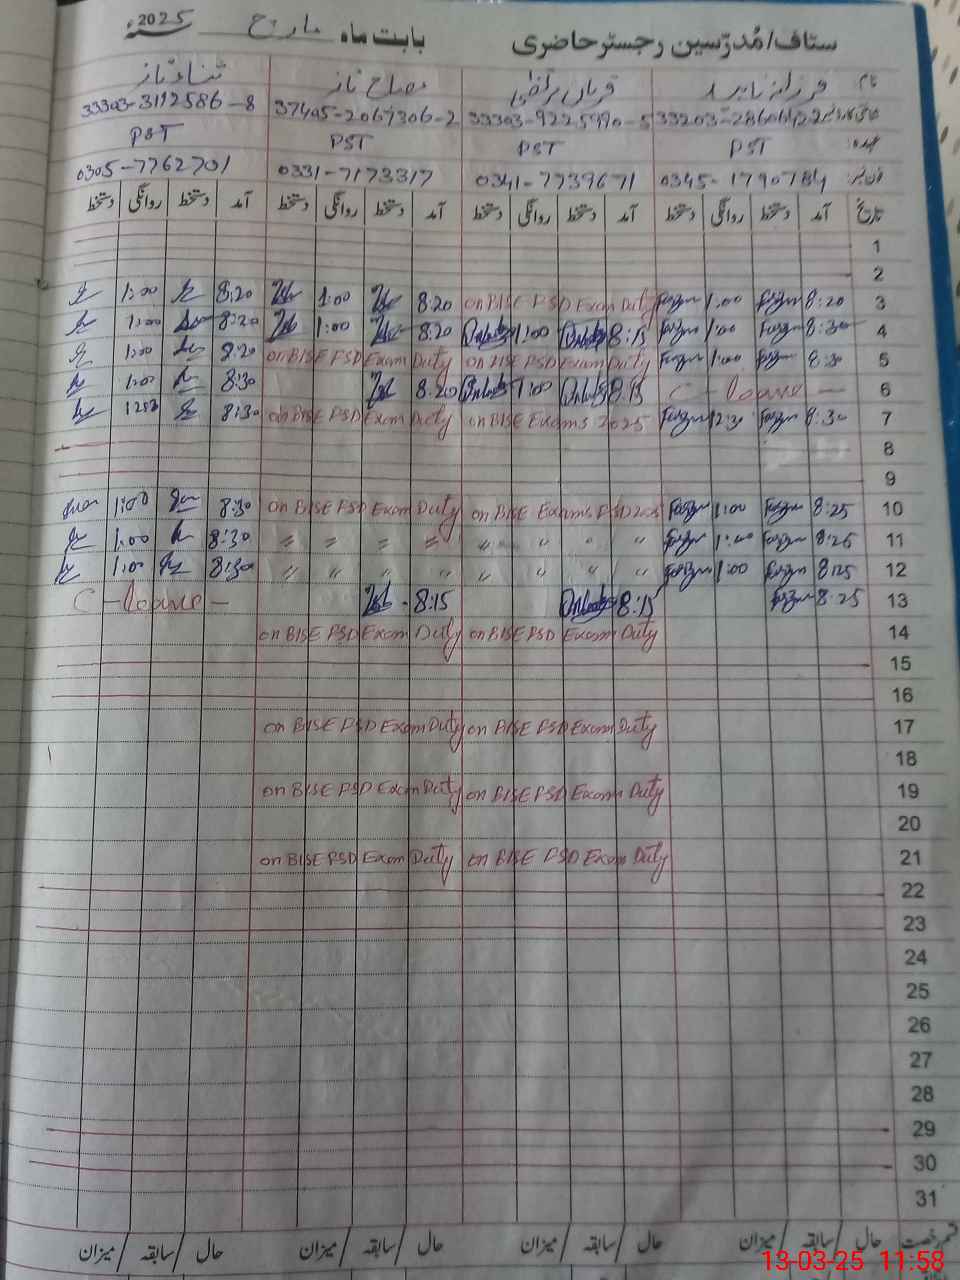 سٹاف/مُدرّسین رجسٹر حاضری بابت ماہ مارچ سنہ 2025ء
نام فرزانہ ناہید قربان مصباح ناز ثناء ناز
33203-2860 33303-9225990-5 37405-2067306-2 33303-3192586-8
عہدہ PST PST PST PST
فون نمبر 0345-1790784 0341-7739671 0331-7173317 0305-7762701
تاریخ آمد دستخط روانگی دستخط آمد دستخط روانگی دستخط آمد دستخط روانگی دستخط آمد دستخط روانگی دستخط
1
2
3 8:20 1:00 on BISE FSD Exam Duty 8:20 1:00 8:20 1:00
4 8:30 1:00 8:15 1:00 8:20 1:00 8:20 1:00
5 8:30 1:00 on BISE FSD Exam Duty on BISE FSD Exam Duty 8:20 1:00
6 C - leave - 8:15 1:00 8:20 8:30 1:00
7 8:30 12:30 on BISE Exams 2025 on BISE FSD Exam Duty 8:30
8
9
10 8:25 1:00 on BISE Exams FSD 2025 on BISE FSD Exam Duty 8:30 1:00
11 1:00 " " " " " " " " 8:30 1:00
12 8:25 1:00 " " " " " " " " 8:30 1:00
13 8:25 8:15 8:15 C - leave -
14 on BISE FSD Exam Duty on BISE FSD Exam Duty
15
16
17 on BISE FSD Exam Duty on BISE FSD Exam Duty
18
19 on BISE FSD Exam Duty on BISE FSD Exam Duty
20
21 on BISE FSD Exam Duty on BISE FSD Exam Duty
22
23
24
25
26
27
28
29
30
31
قسم رخصت حال / سابقہ / میزان حال / سابقہ / میزان حال / سابقہ / میزان حال / سابقہ / میزان
13-03-25 11:58